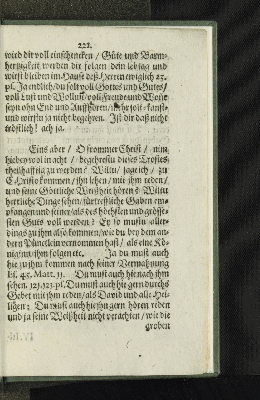 221.
wird dir voll einschencken / Güte und Barm-
hertzigkeit werden dir folgen dein lebtag und
wirst bleiben im Hause deß Herrn ewiglich 23.
pl. Ja endlich / du solt voll Gottes und Gutes /
voll Lust und Wollust / voll Freude und Wonne
seyn ohn End und Auffhören /
und wirstu ja nicht begehren. Ist dir daß nicht
tröstlich? ach ja.
Eins aber / O frommer Christ / nim
hiebey wol in acht / begehrestu dieses Trostes
theilhafftig zu werden? Wiltu / sage ich / zu
Christo kommen / ihn sehen / mit ihm reden /
und seine Göttliche Weißheit hören? Wiltu
herrliche Dinge sehen / fürtreffliche Gaben em-
pfangen und seiner / als des höchsten und grösse-
sten Guts voll werden? Ey so mustu aller-
dings zu ihm also kommen / wie du bey dem an-
dern Pünctlein vernommen hast / als eine Kö-
nigin / mit ihm folgen etc. Ja du must auch
hie zu ihm kommen nach seiner Vermahnung
Es. 45. Matt. 11. Du must auch hie nach ihm
sehen. 123. pl. Du must auch hie gern durchs
Gebet mit ihm reden / als David und alle Hei-
ligen: Du must auch hie ihn gern hören reden
und ja seine Weißheit nicht verachten / wie die
groben